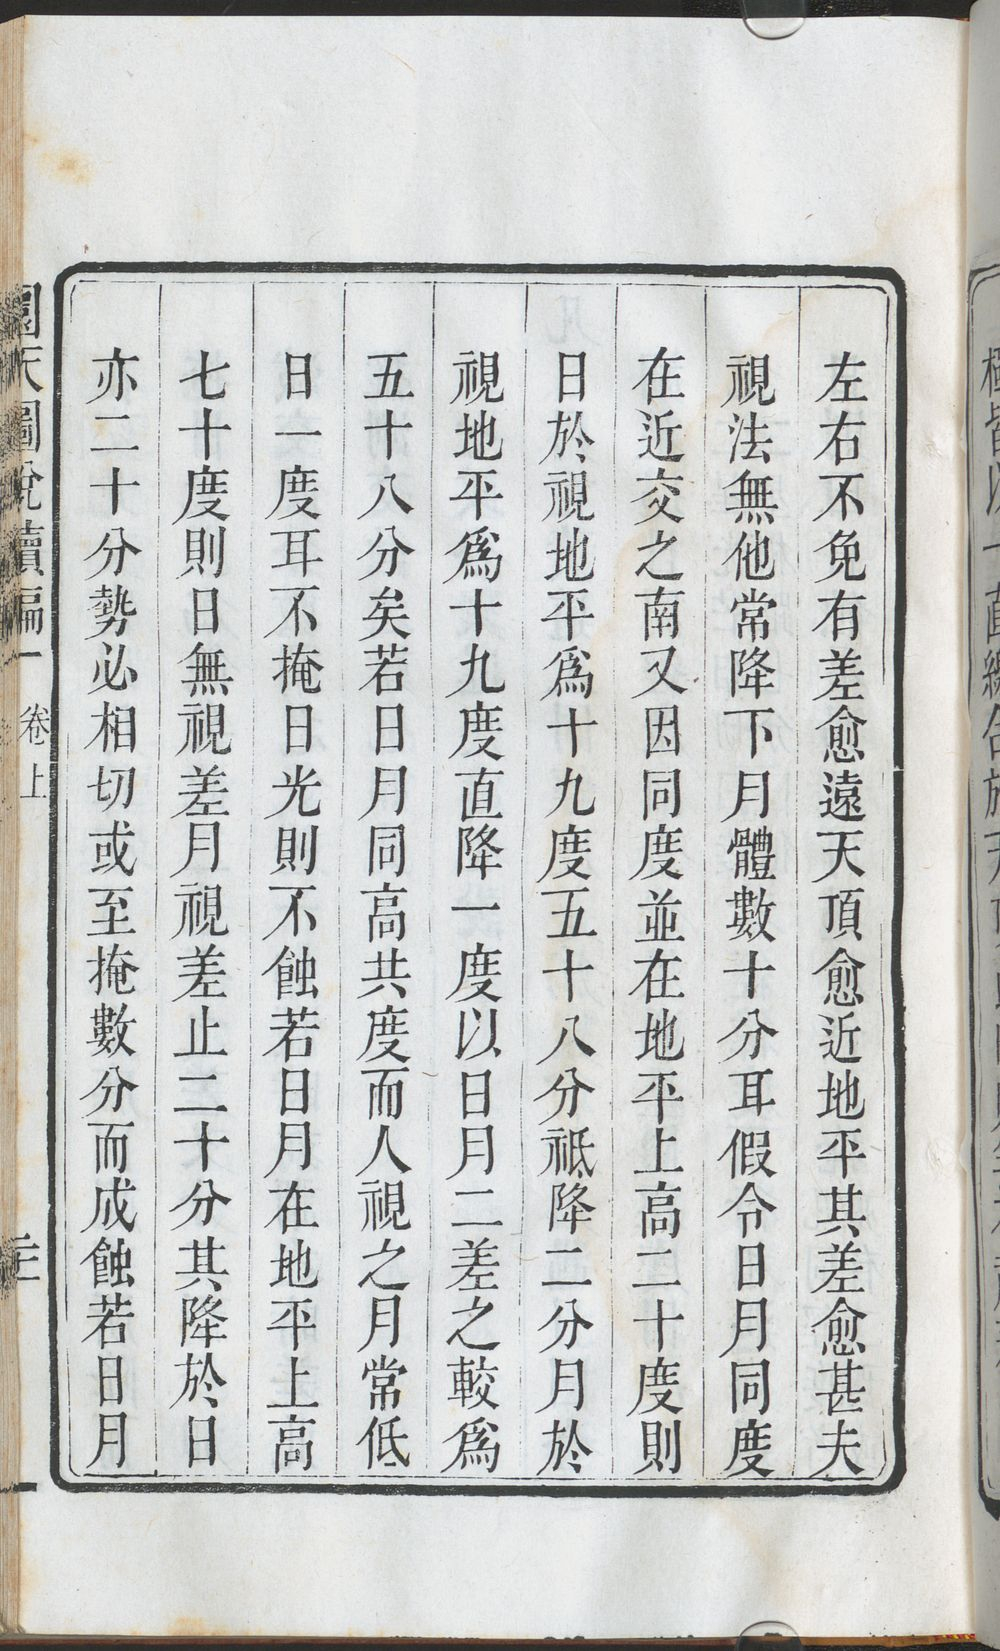 左右不免有差愈遠天頂愈近地平其差愈甚夫
視法無他常降下月體數十分耳假令日月同度
在近交之南又因同度並在地平上高二十度則
日於視地平爲十九度五十八分祗降二分月於
視地平爲十九度直降一度以日月二差之較爲
五十八分矣若日月同高共度而人視之月常低
日一度耳不掩日光則不蝕若日月在地平上高
七十度則日無視差月視差止二十分其降於日
亦二十分勢必相切或至掩數分而成蝕若日月
圜天圖說續編 卷上